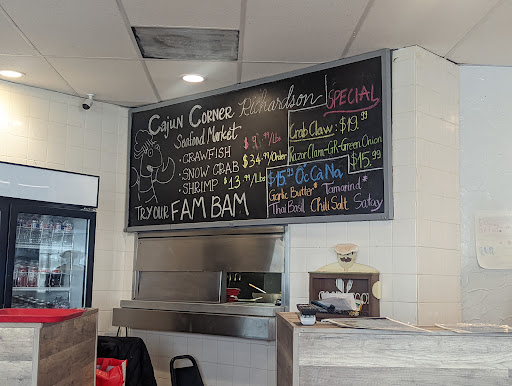 Cajun Corner Richardson
Seafood Market
• CRAWFISH
• SNOW CRAB $34.99/Order
• SHRIMP $13.99/Lbs
TRY OUR FAM BAM
SPECIAL
Crab Claw: $19.99
Razor Clam-GR-Green Onion
$15.99
$15.99 Ốc Cà Na
Garlic Butter* Tamarind*
Thai Basil Chili Salt Satay